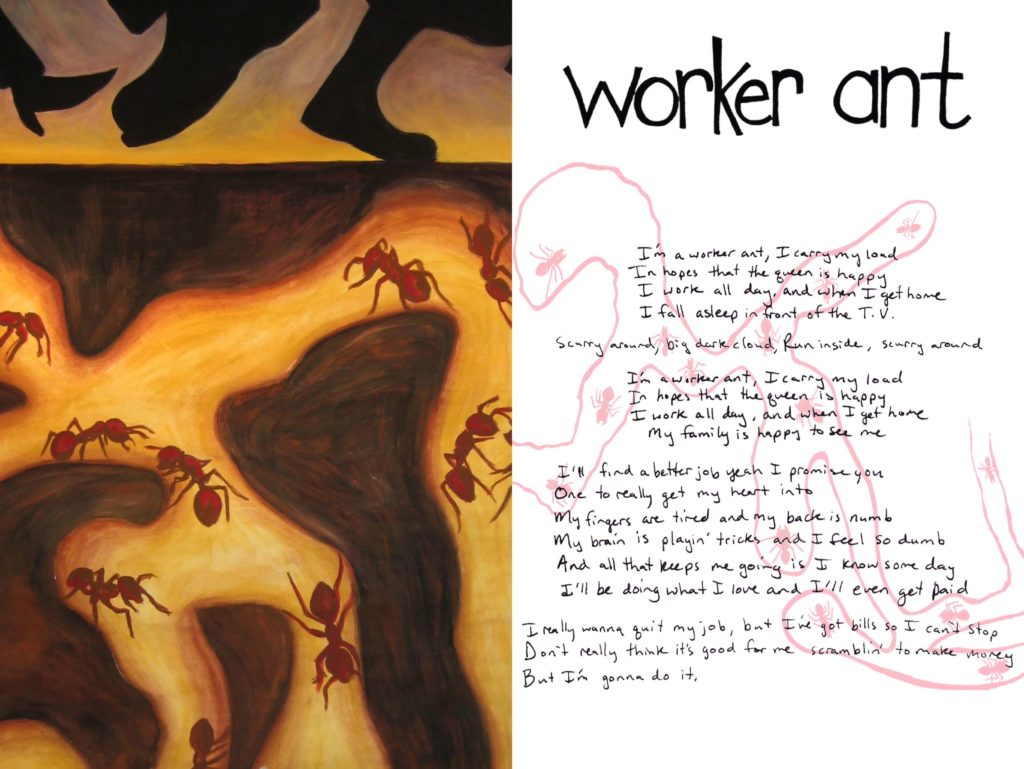 worker ant
I'm a worker ant, I carry my load
In hopes that the queen is happy
I work all day, and when I get home
I fall asleep in front of the T.V.
Scurry around, big dark cloud, Run inside, scurry around
I'm a worker ant, I carry my load
In hopes that the queen is happy
I work all day, and when I get home
My family is happy to see me
I'll find a better job yeah I promise you
One to really get my heart into
My fingers are tired and my back is numb
My brain is playin' tricks and I feel so dumb
And all that keeps me going is I know some day
I'll be doing what I love and I'll even get paid
I really wanna quit my job, but I've got bills so I can't stop
Don't really think it's good for me scramblin' to make money
But I'm gonna do it.